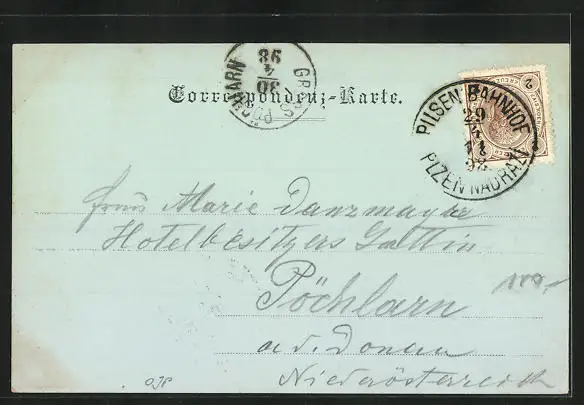 Correspondenz-Karte.
GROSS-PÖCHLARN
30
4
98
PILSEN BAHNHOF
29
4
11
98
PLZEŇ NÁDRAŽÍ
2
Frau Marie Danzmayr
Hotelbesitzers Gattin
Pöchlarn
a. d. Donau
Niederösterreich